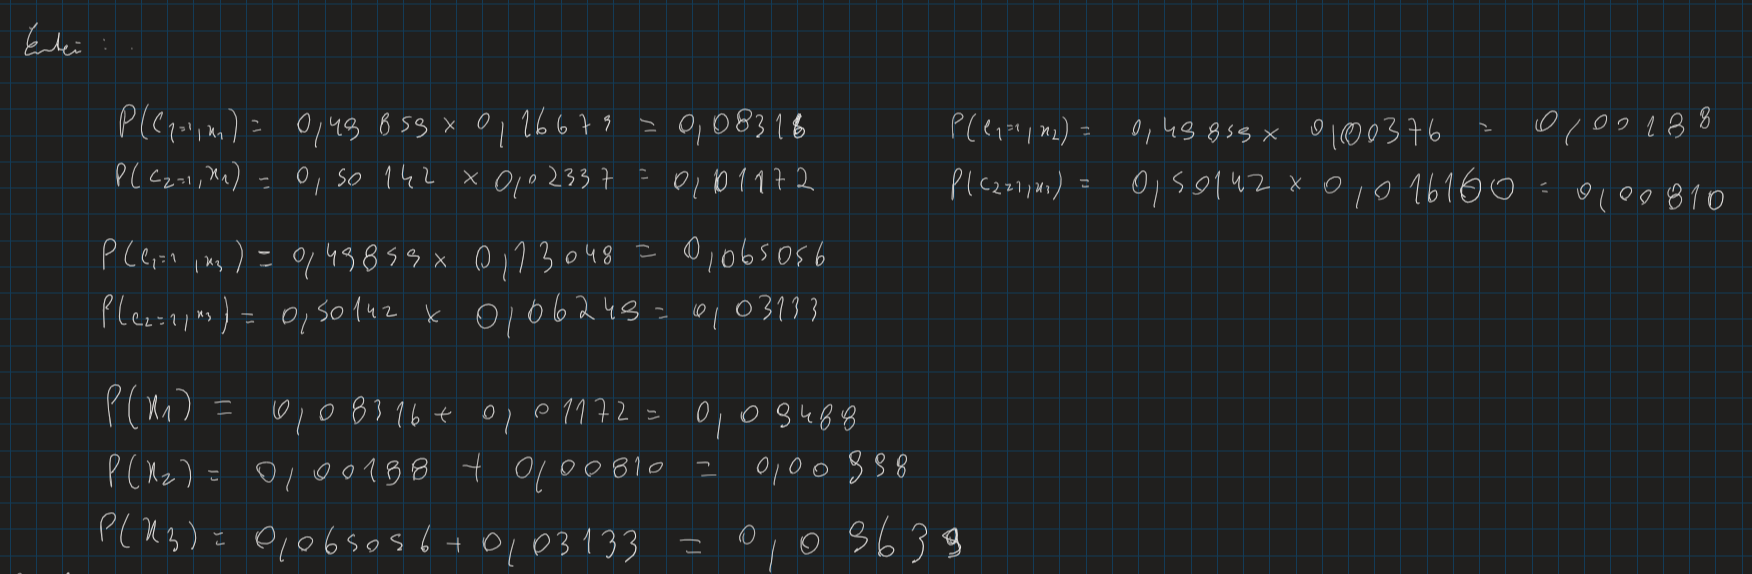 Então:
P(c1=1,x1) = 0,49859 × 0,16679 = 0,08316 P(c1=1,x2) = 0,49859 × 0,00376 = 0,00188
P(c2=1,x1) = 0,50142 × 0,02337 = 0,01172 P(c2=1,x2) = 0,50142 × 0,016160 = 0,00810
P(c1=1,x3) = 0,49859 × 0,13048 = 0,065056
P(c2=1,x3) = 0,50142 × 0,06249 = 0,03133
P(x1) = 0,08316 + 0,01172 = 0,09488
P(x2) = 0,00188 + 0,00810 = 0,00998
P(x3) = 0,065056 + 0,03133 = 0,09639